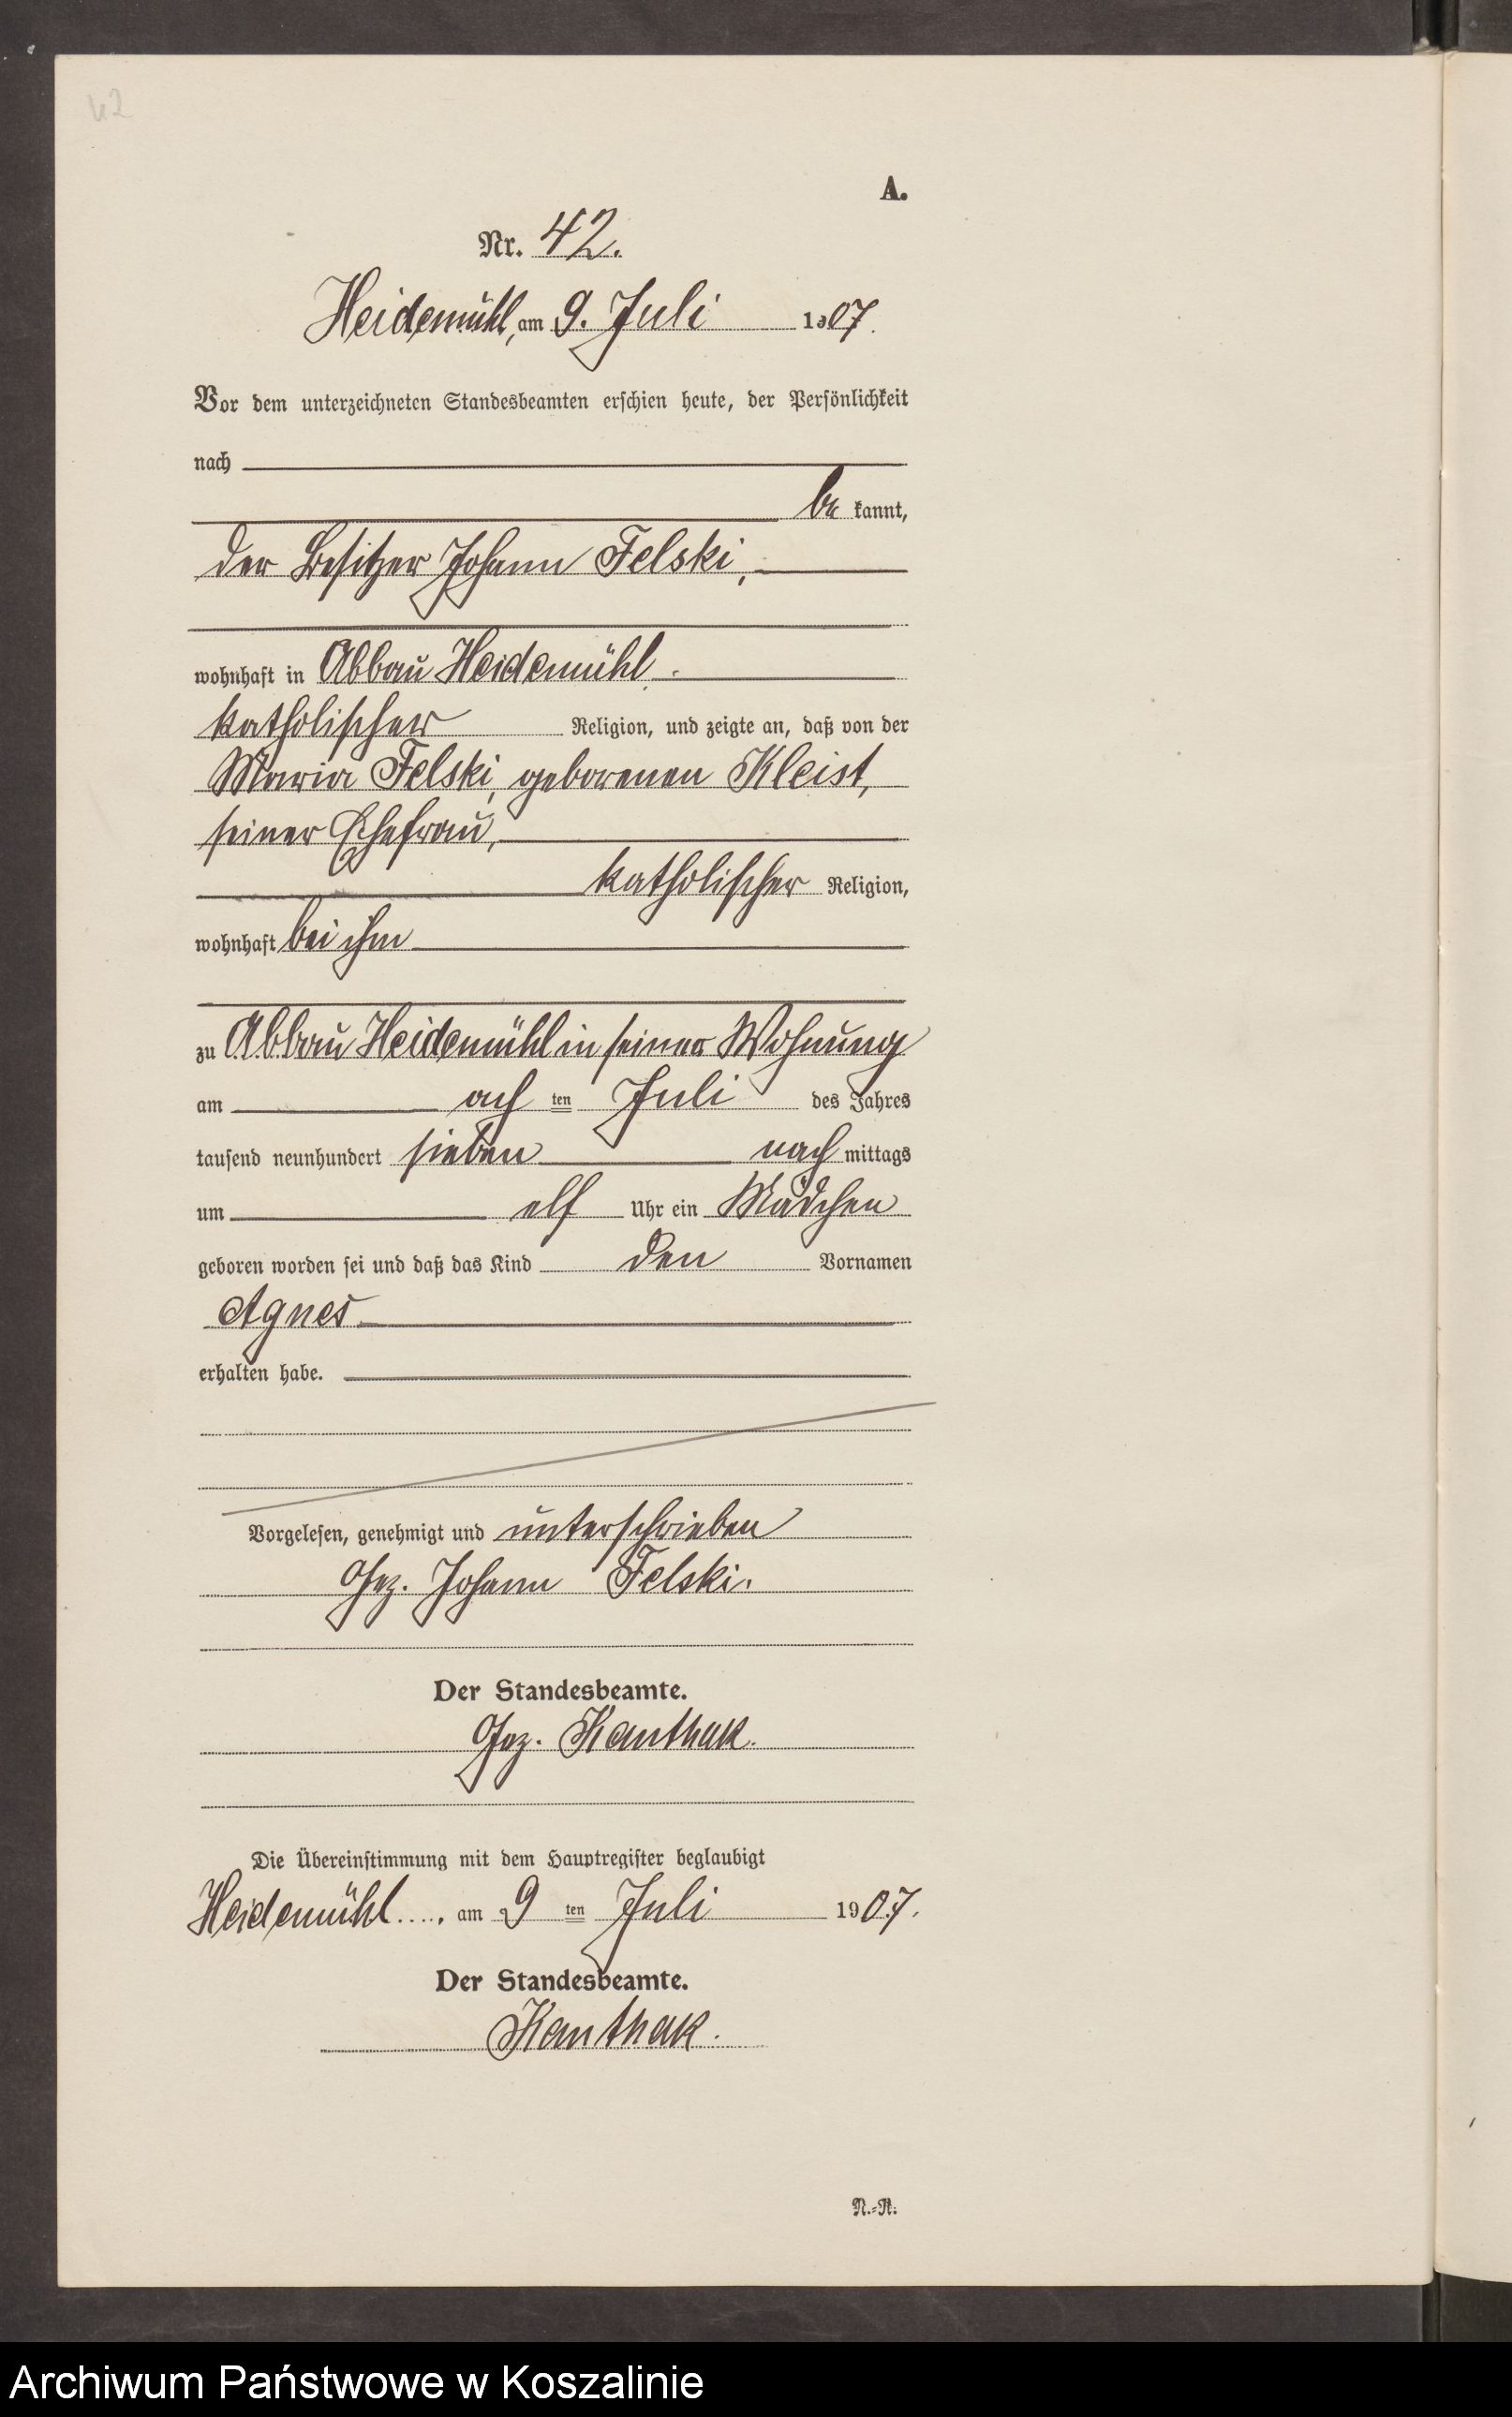 42
A.
Nr. 42.
Heidemühl, am 9. Juli 1907.
Vor dem unterzeichneten Standesbeamten erschien heute, der Persönlichkeit
nach
be kannt,
der Besitzer Johann Felski,
wohnhaft in Abbau Heidemühl.
katholischer Religion, und zeigte an, daß von der
Maria Felski, geborenen Kleist,
seiner Ehefrau,
katholischer Religion,
wohnhaft bei ihm
zu Abbau Heidemühl in seiner Wohnung
am ach ten Juli des Jahres
tausend neunhundert sieben nach mittags
um elf Uhr ein Mädchen
geboren worden sei und daß das Kind den Vornamen
Agnes
erhalten habe.
Vorgelesen, genehmigt und unterschrieben
Gez. Johann Felski.
Der Standesbeamte.
Gez. Kanthak.
Die Übereinstimmung mit dem Hauptregister beglaubigt
Heidemühl, am 9 ten Juli 1907.
Der Standesbeamte.
Kanthak.
N.-R.
Archiwum Państwowe w Koszalinie